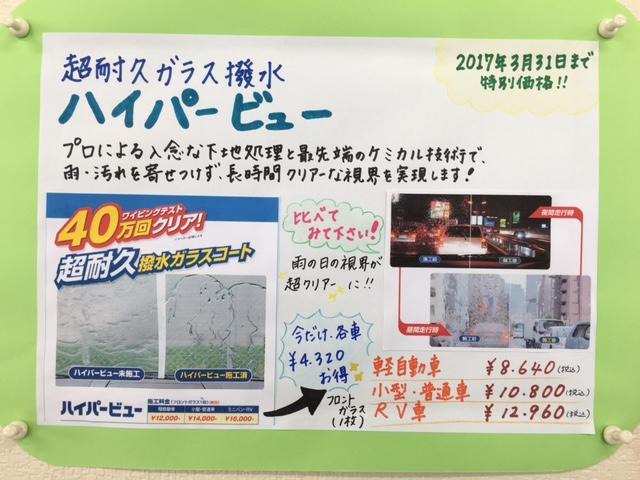 超耐久ガラス撥水
ハイパービュー
2017年3月31日まで
特別価格!!
プロによる入念な下地処理と最先端のケミカル技術で、
雨・汚れを寄せつけず、長時間クリアーな視界を実現します!
ワイピングテスト
40万回クリア!
超耐久撥水ガラスコート
ハイパービュー未施工
ハイパービュー施工済
ハイパービュー
施工料金
軽自動車 小型・普通車 ミニバン・RV
¥12,000- ¥14,000- ¥16,000-
比べて
みて下さい!
雨の日の視界が
超クリアーに!!
今だけ、各車
¥4,320
お得
フロント
ガラス
(1枚)
夜間走行時
施工前 施工後
昼間走行時
施工前 施工後
軽自動車 ¥8,640(税込)
小型・普通車 ¥10,800(税込)
RV車 ¥12,960(税込)